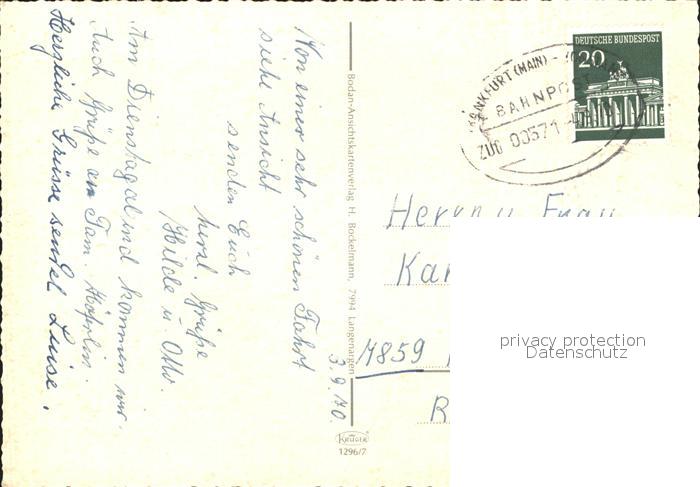 3.9.70.
Von einer sehr schönen Fahrt
siehe Ansicht
senden Euch
herzl. Grüße
Hilde u. Otto.
Am Dienstagabend kommen wir.
Auch Grüße an Fam.
Herzliche Grüsse sendet Luise.
Bodan-Ansichtskartenverlag H. Bockelmann, 7994 Langenargen
KRÜGER
1296/7
DEUTSCHE BUNDESPOST
20
FRANKFURT (MAIN) -
BAHNPOST
ZUG 00371
Herrn u. Frau
Kar
7859
R
privacy protection
Datenschutz